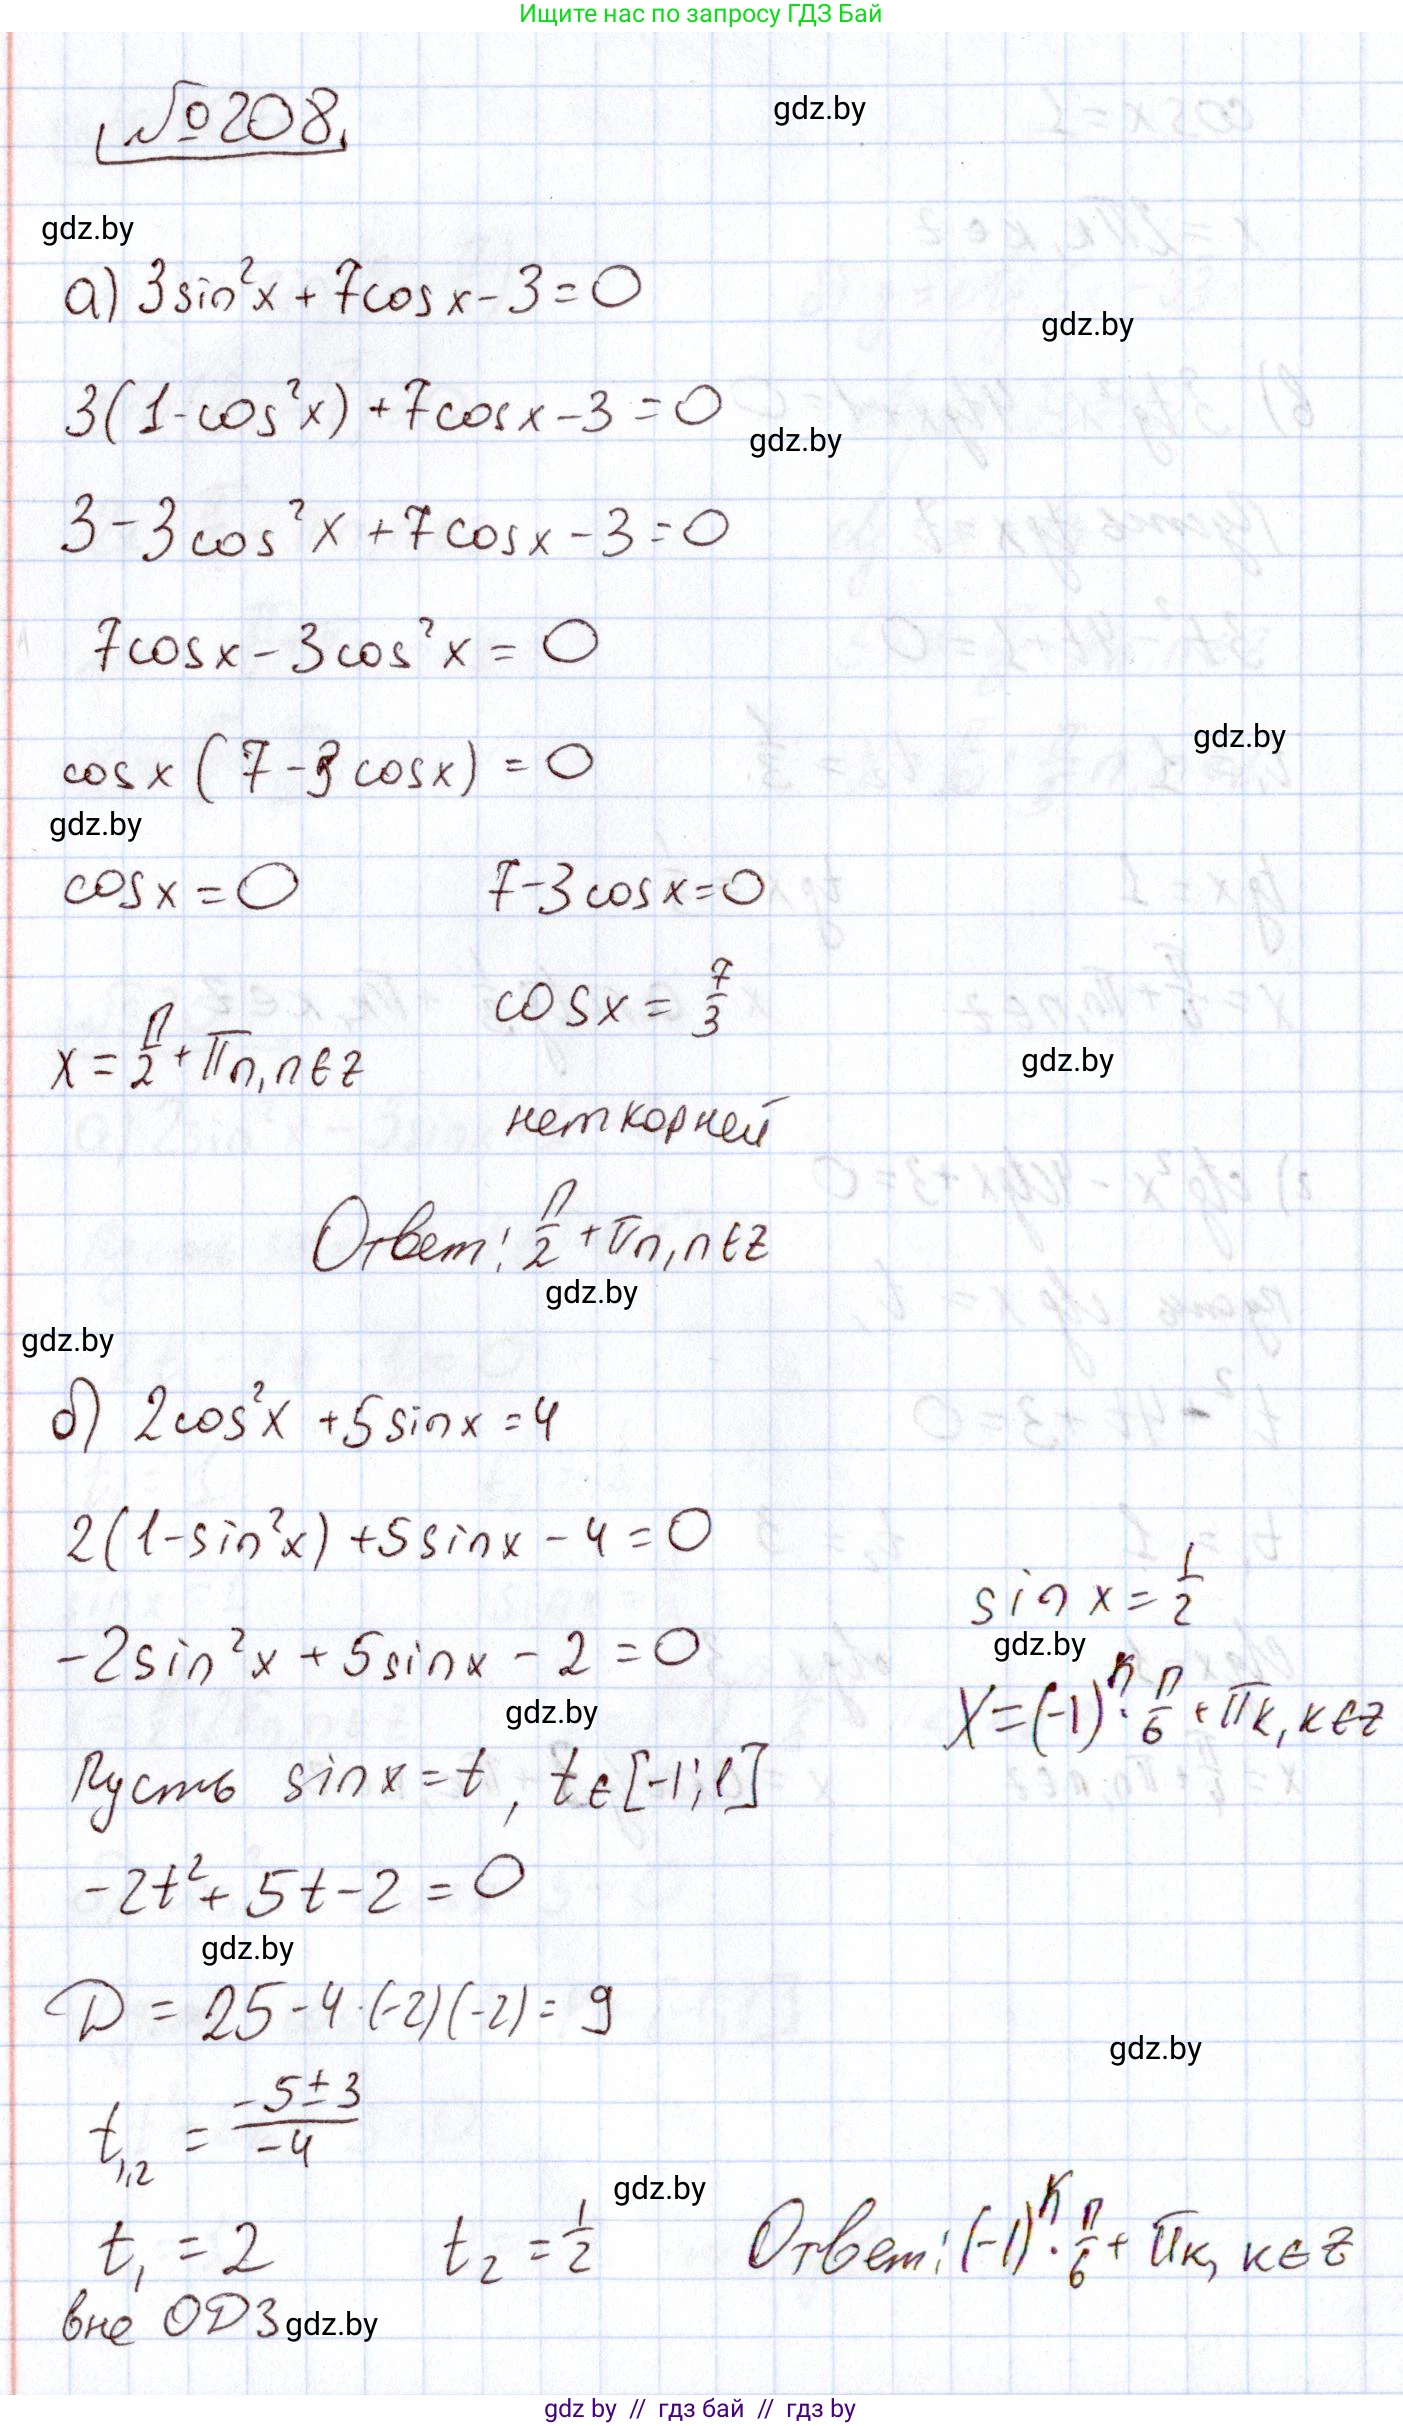 Ищите нас по запросу ГДЗ Бай
№208.
gdz.by
gdz.by
а) 3sin²x + 7cosx - 3 = 0
gdz.by
3(1-cos²x) + 7cosx - 3 = 0
gdz.by
3 - 3cos²x + 7cosx - 3 = 0
7cosx - 3cos²x = 0
gdz.by
cosx (7 - 3cosx) = 0
gdz.by
cosx = 0 7 - 3cosx = 0
cosx = 7/3
x = π/2 + πn, n∈z
gdz.by
нет корней
Ответ: π/2 + πn, n∈z
gdz.by
gdz.by
б) 2cos²x + 5sinx = 4
2(1-sin²x) + 5sinx - 4 = 0
sinx = 1/2
gdz.by
-2sin²x + 5sinx - 2 = 0
gdz.by
x = (-1)ᵏ · π/6 + πk, k∈z
Пусть sinx = t, t∈[-1; 1]
-2t² + 5t - 2 = 0
gdz.by
D = 25 - 4·(-2)(-2) = 9
gdz.by
t₁,₂ = (-5±3)/(-4)
gdz.by
t₁ = 2 t₂ = 1/2 Ответ: (-1)ᵏ · π/6 + πk, k∈z
вне ОДЗ gdz.by
gdz by // гдз бай // гдз by